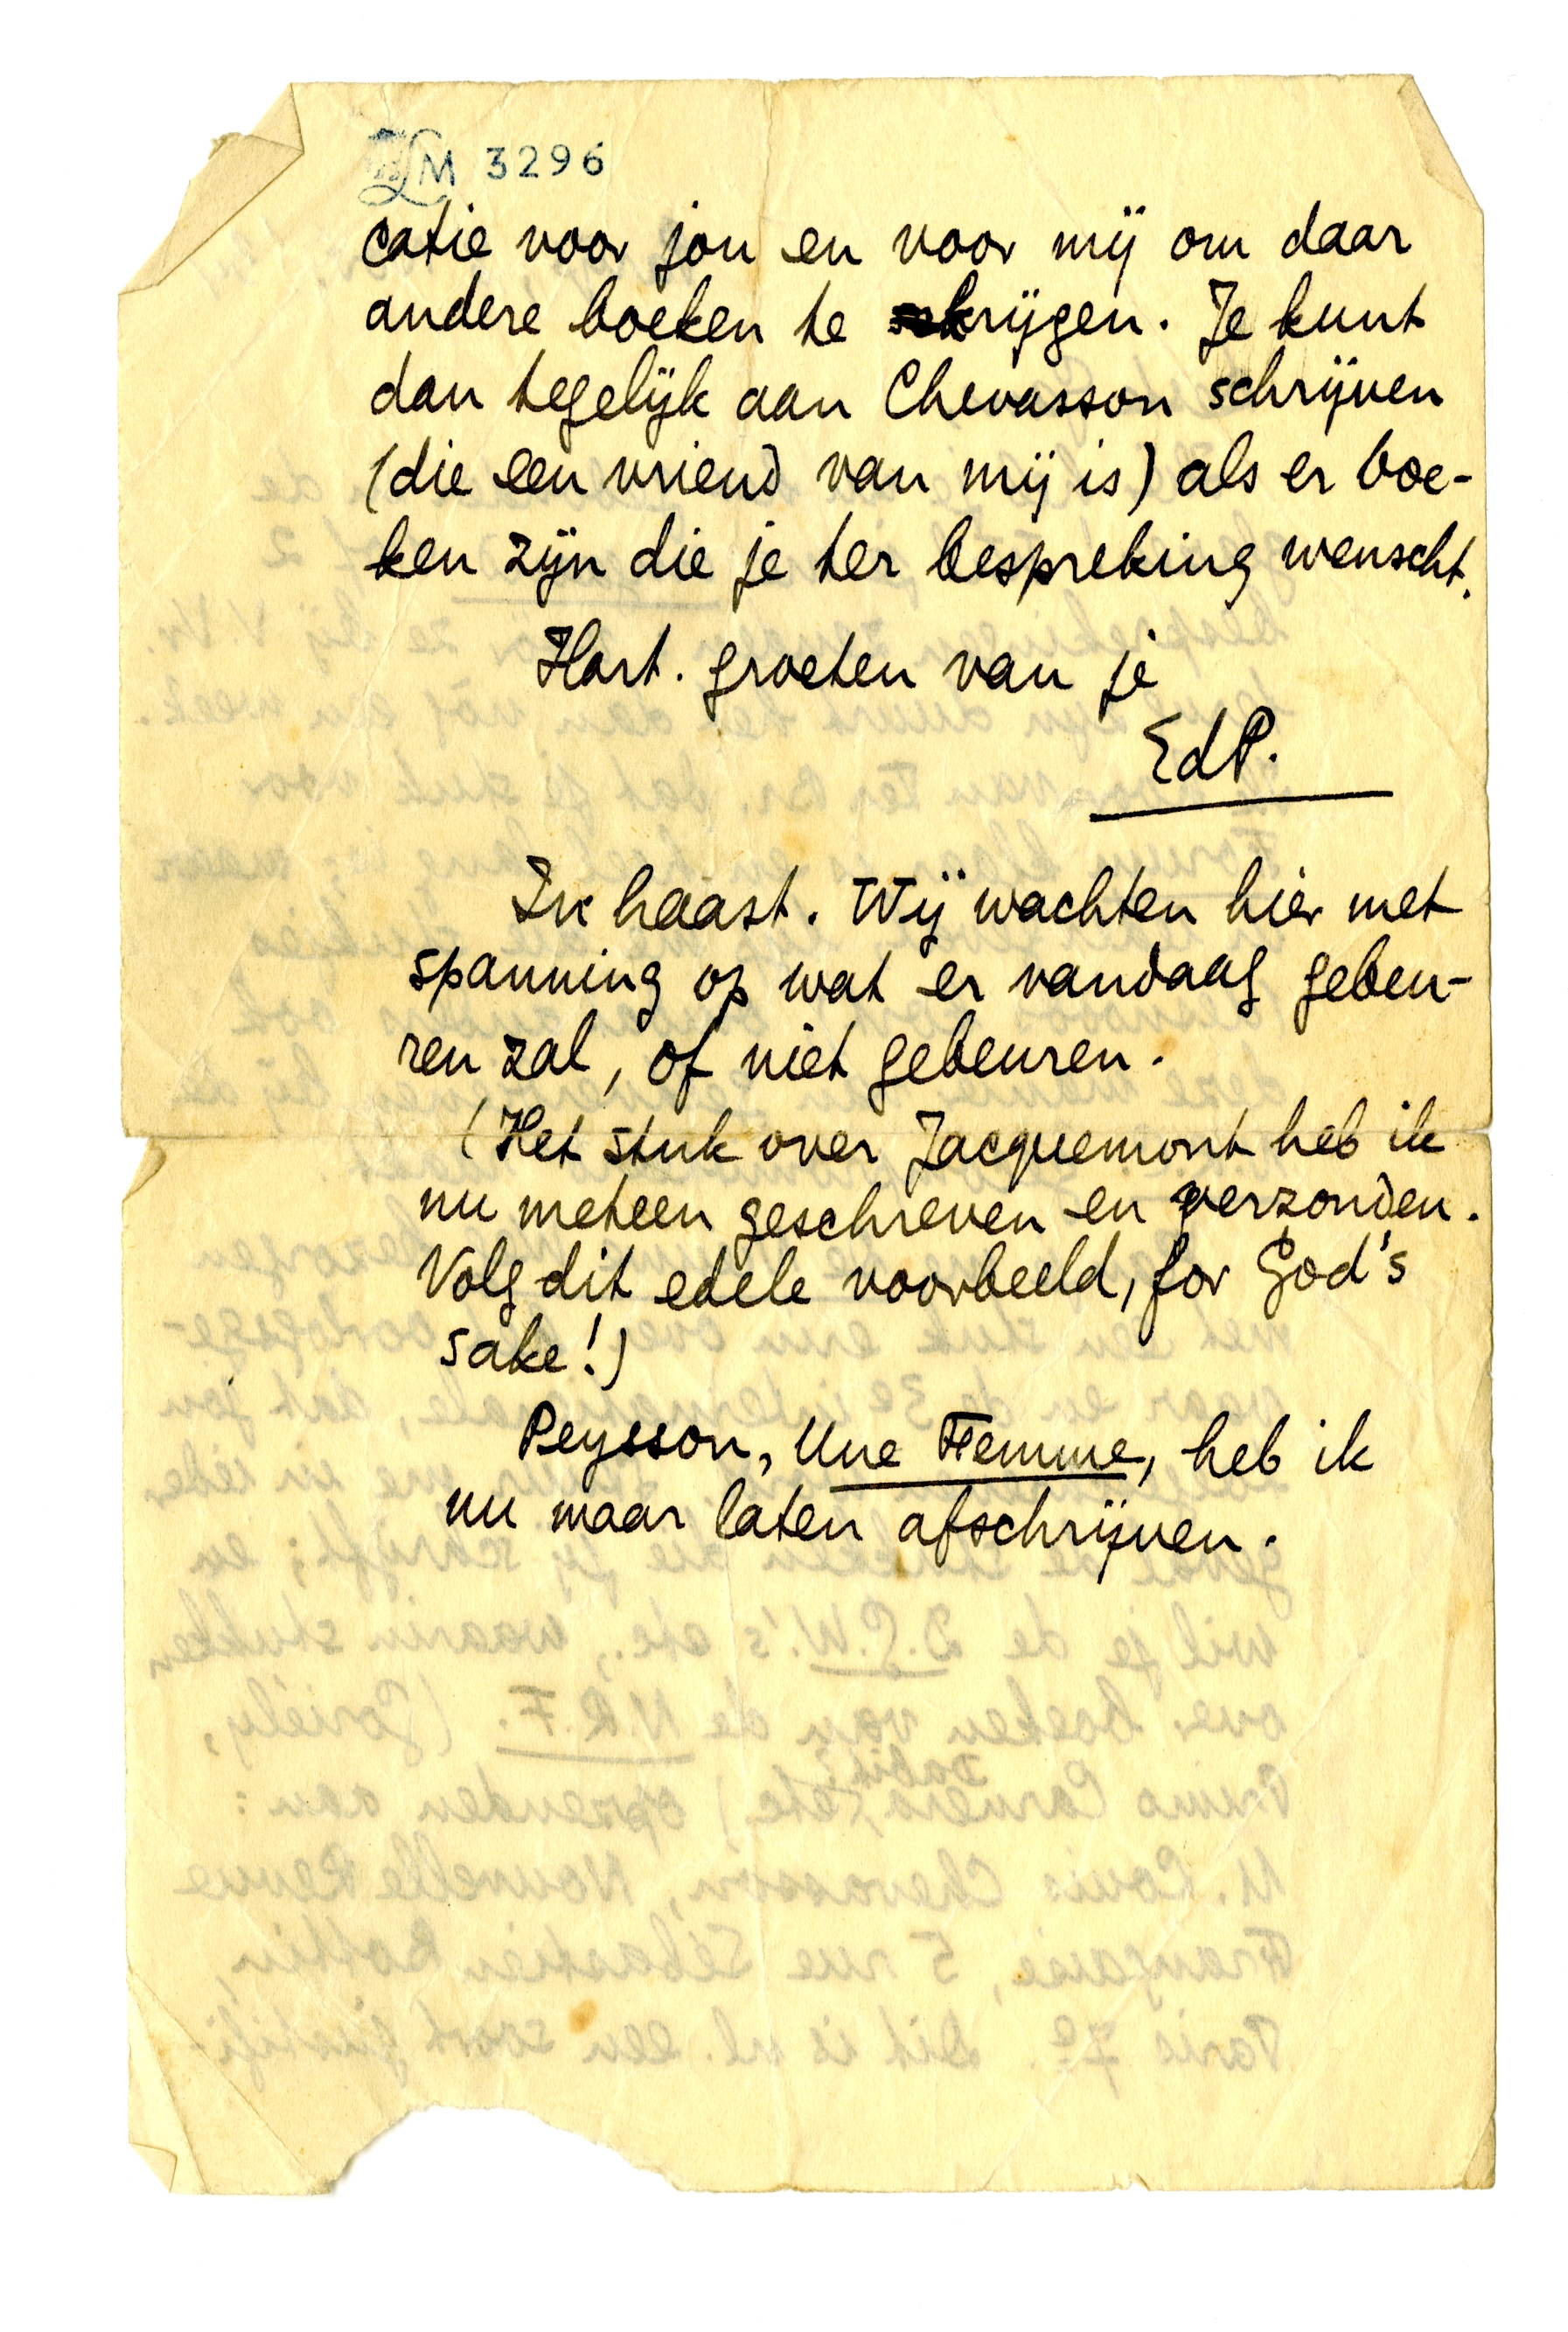 LM 3296
catie voor jou en voor mij om daar
andere boeken te krijgen. Je kunt
dan tegelijk aan Chevasson schrijven
(die een vriend van mij is) als er boe-
ken zijn die je ter bespreking wenscht.
Hart. groeten van je
EdP.
In haast. Wij wachten hier met
spanning op wat er vandaag gebeu-
ren zal, of niet gebeuren.
(Het stuk over Jacquemont heb ik
nu meteen geschreven en verzonden.
Volg dit edele voorbeeld, for God's
sake!)
Peysson, Une Femme, heb ik
nu maar laten afschrijven.